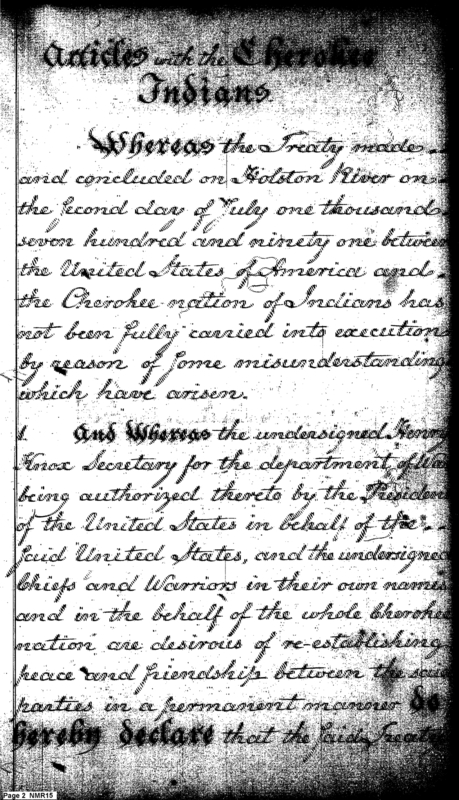 Articles with the Cherokee
Indians
Whereas the Treaty made
and concluded on Holston River on
the second day of July one thousand
seven hundred and ninety one between
the United States of America and
the Cherokee nation of Indians has
not been fully carried into execution
by reason of some misunderstanding
which have arisen.
1. And Whereas the undersigned Henry
Knox Secretary for the department of War
being authorized thereto by the President
of the United States in behalf of the
said United States, and the undersigned
Chiefs and Warriors in their own names
and in the behalf of the whole Cherokee
nation are desirous of re-establishing
peace and friendship between the said
parties in a permanent manner do
hereby declare that the said Treaty
Page 2 NMR15